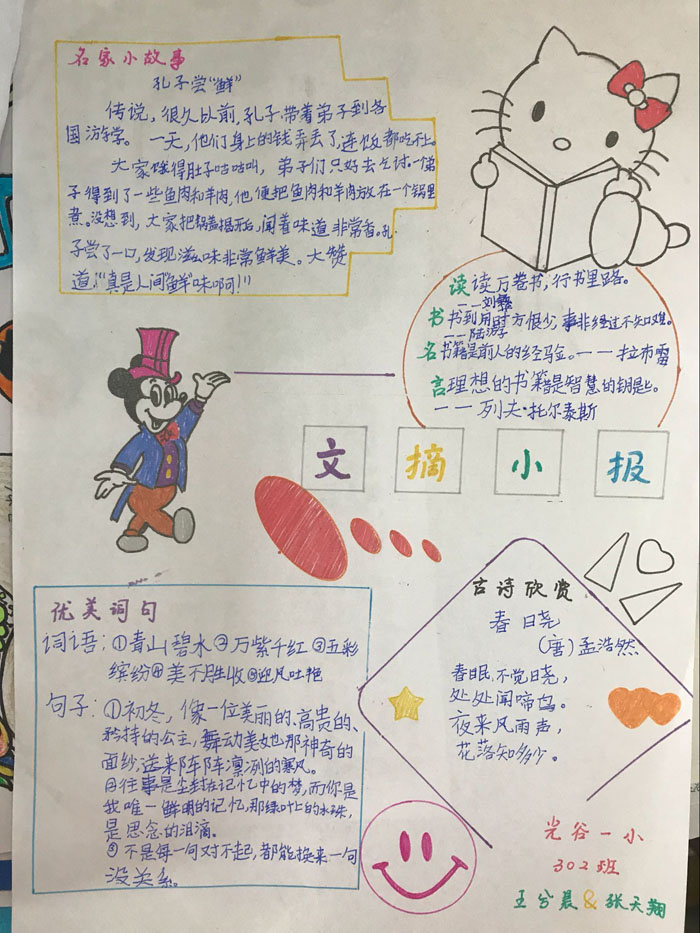 名家小故事
孔子尝“鲜”
传说，很久以前，孔子带着弟子到各
国游学。一天，他们身上的钱弄丢了，连饭都吃不上。
大家饿得肚子咕咕叫，弟子们只好去乞讨。一个弟
子得到了一些鱼肉和羊肉，他便把鱼肉和羊肉放在一个锅里
煮。没想到，大家把锅盖揭开后，闻着味道非常香。孔
子尝了一口，发现滋味非常鲜美。大赞
道：“真是人间“鲜”味啊！”
读读万卷书，行书里路。
——刘彝
书书到用时方恨少，事非经过不知难。
——陆游
名书籍是前人的经验。——拉布雷
言理想的书籍是智慧的钥匙。
——列夫·托尔泰斯
文摘小报
优美词句
词语：①青山碧水②万紫千红③五彩
缤纷④美不胜收⑤迎风吐艳
句子：①初冬，像一位美丽的、高贵的、
矜持的公主，舞动着她那神奇的
面纱，送来阵阵凛冽的寒风。
②往事是尘封在记忆中的梦，而你是
我唯一鲜明的记忆，那绿叶上的水珠，
是思念的泪滴。
③不是每一句对不起，都能换来一句
没关系。
古诗欣赏
春晓
（唐）孟浩然
春眠不觉晓，
处处闻啼鸟。
夜来风雨声，
花落知多少。
光谷一小
302班
王兮晨&张天翔